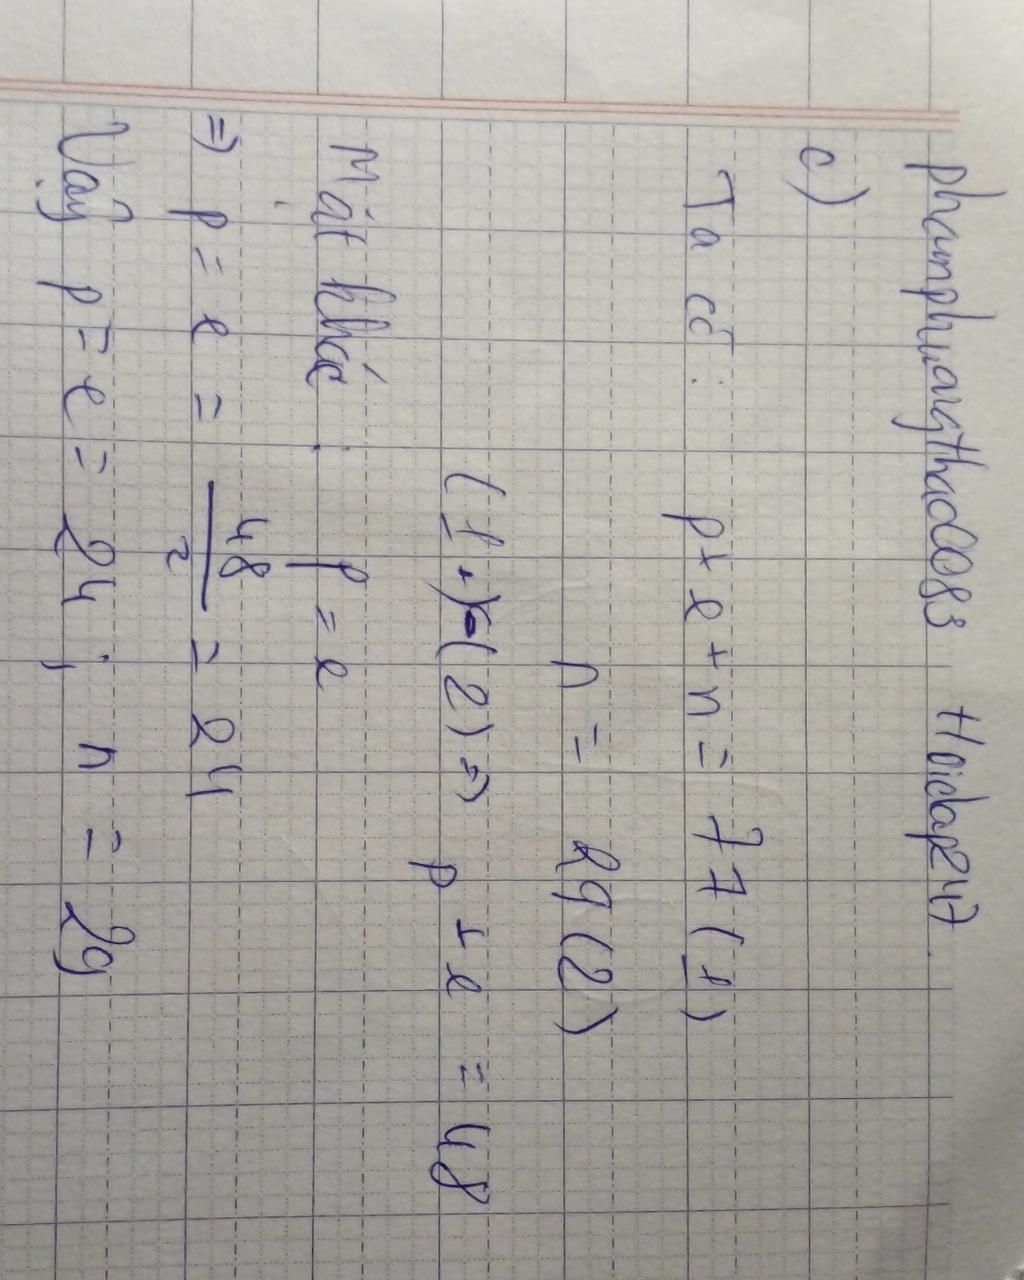 phamphuongthao10083 Hoidap247.
c)
Ta có: p + e + n = 77 (1)
n = 29 (2)
(1) - (2) => p + e = 48
Mặt khác: p = e
=> p = e = 48/2 = 24
Vậy p = e = 24; n = 29